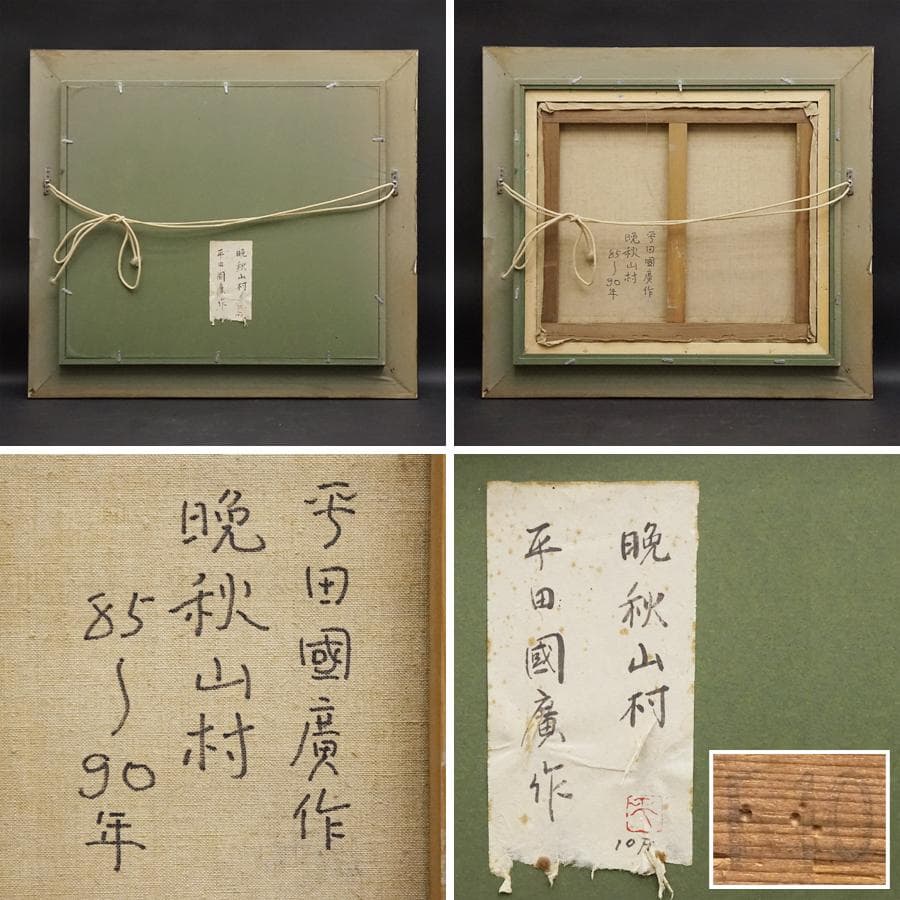 晩秋山村
平田國廣作
平田國廣作
晩秋山村
85〜90年
平田國廣作
晩秋山村
85
〜
90
年
晩秋山村
10月
平田國廣作
10